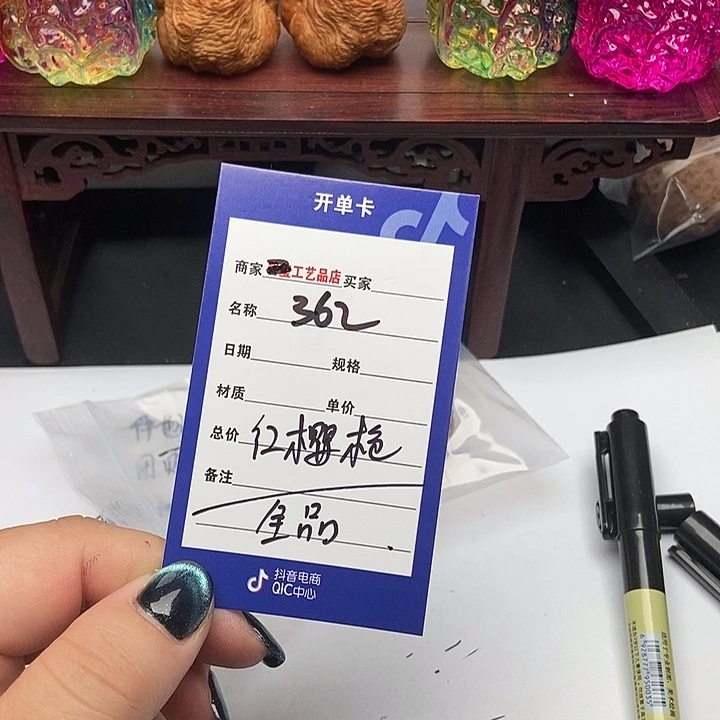 开单卡
商家 工艺品店 买家
名称 362
日期 规格
材质 单价
总价 红樱枪
备注
全品
抖音电商
QIC中心
6928777950035